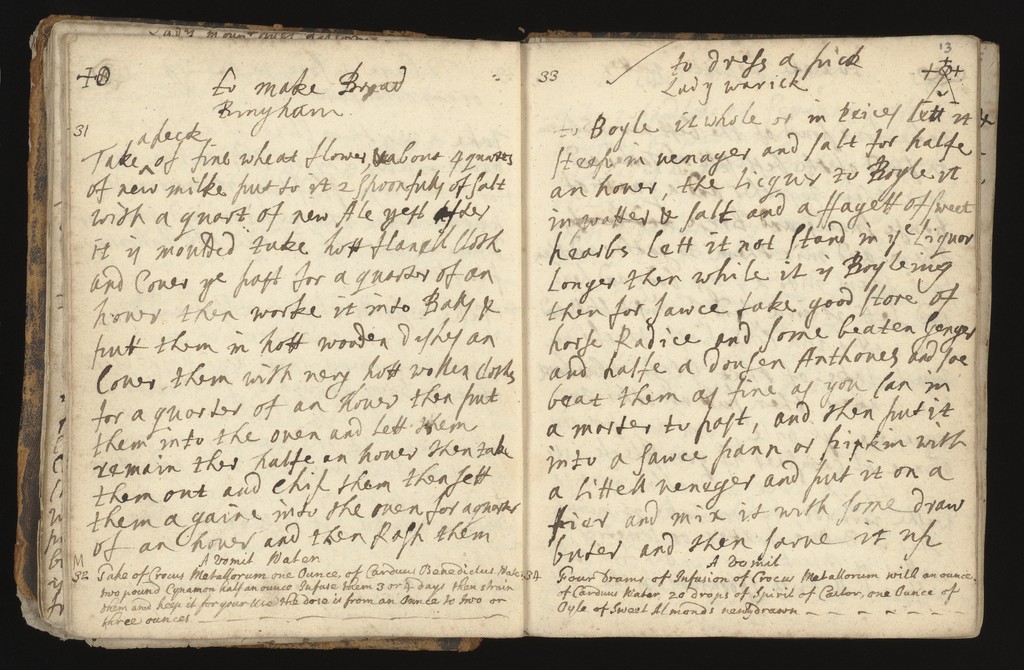 10
to make Bread
Bringham
31
a peck
Take of fine wheat flower, about 4 quarts
of new milke put to it 2 spoonfulls of salt
with a quart of new Ale yest after
it is moulded take hott flanell Cloth
and Cover ye past for a quarter of an
hover then worke it into Balls &
putt them in hott wooden dishes an
Cover them with very hott wollen Cloths
for a quarter of an hover then put
them into the oven and lett them
remain ther halfe an hover then take
them out and Chip them then sett
them a gaine into the oven for a quarter
of an hover and then Rasp them
M
A Vomit Water
32
Take of Crocus Metallorum one Ounce, of Carduus Benedictus Water
two pound Cynamon half an ounce Infuse them 3 or 4 days then strain
them and keep it for your Use the dose is from an Ounce to two or
three ounces
13
33
to dress a
Lady warick
to Boyle it whole or in Peices lett it
steep in venager and salt for halfe
an hover, the Licquer to Boyle it
in watter & salt and a ffagett of sweet
hearbs Lett it not stand in ye Liquor
Longer then while it is Boyleing
then for sawce take good store of
horse Radice and some beaten genger
and halfe a dousen Anthoves and soe
beat them as fine as you Can in
a morter to past, and then put it
into a sawce pann or pipkin with
a Littell venager and put it on a
fier and mix it with some draw
buter and then sarve it up
A Vomit
34
Four Drams of Infusion of Crocus Metallorum will an ounce
of Carduus Water 20 drops of Spirit of Castor, one Ounce of
Oyle of Sweet Almonds newly drawn